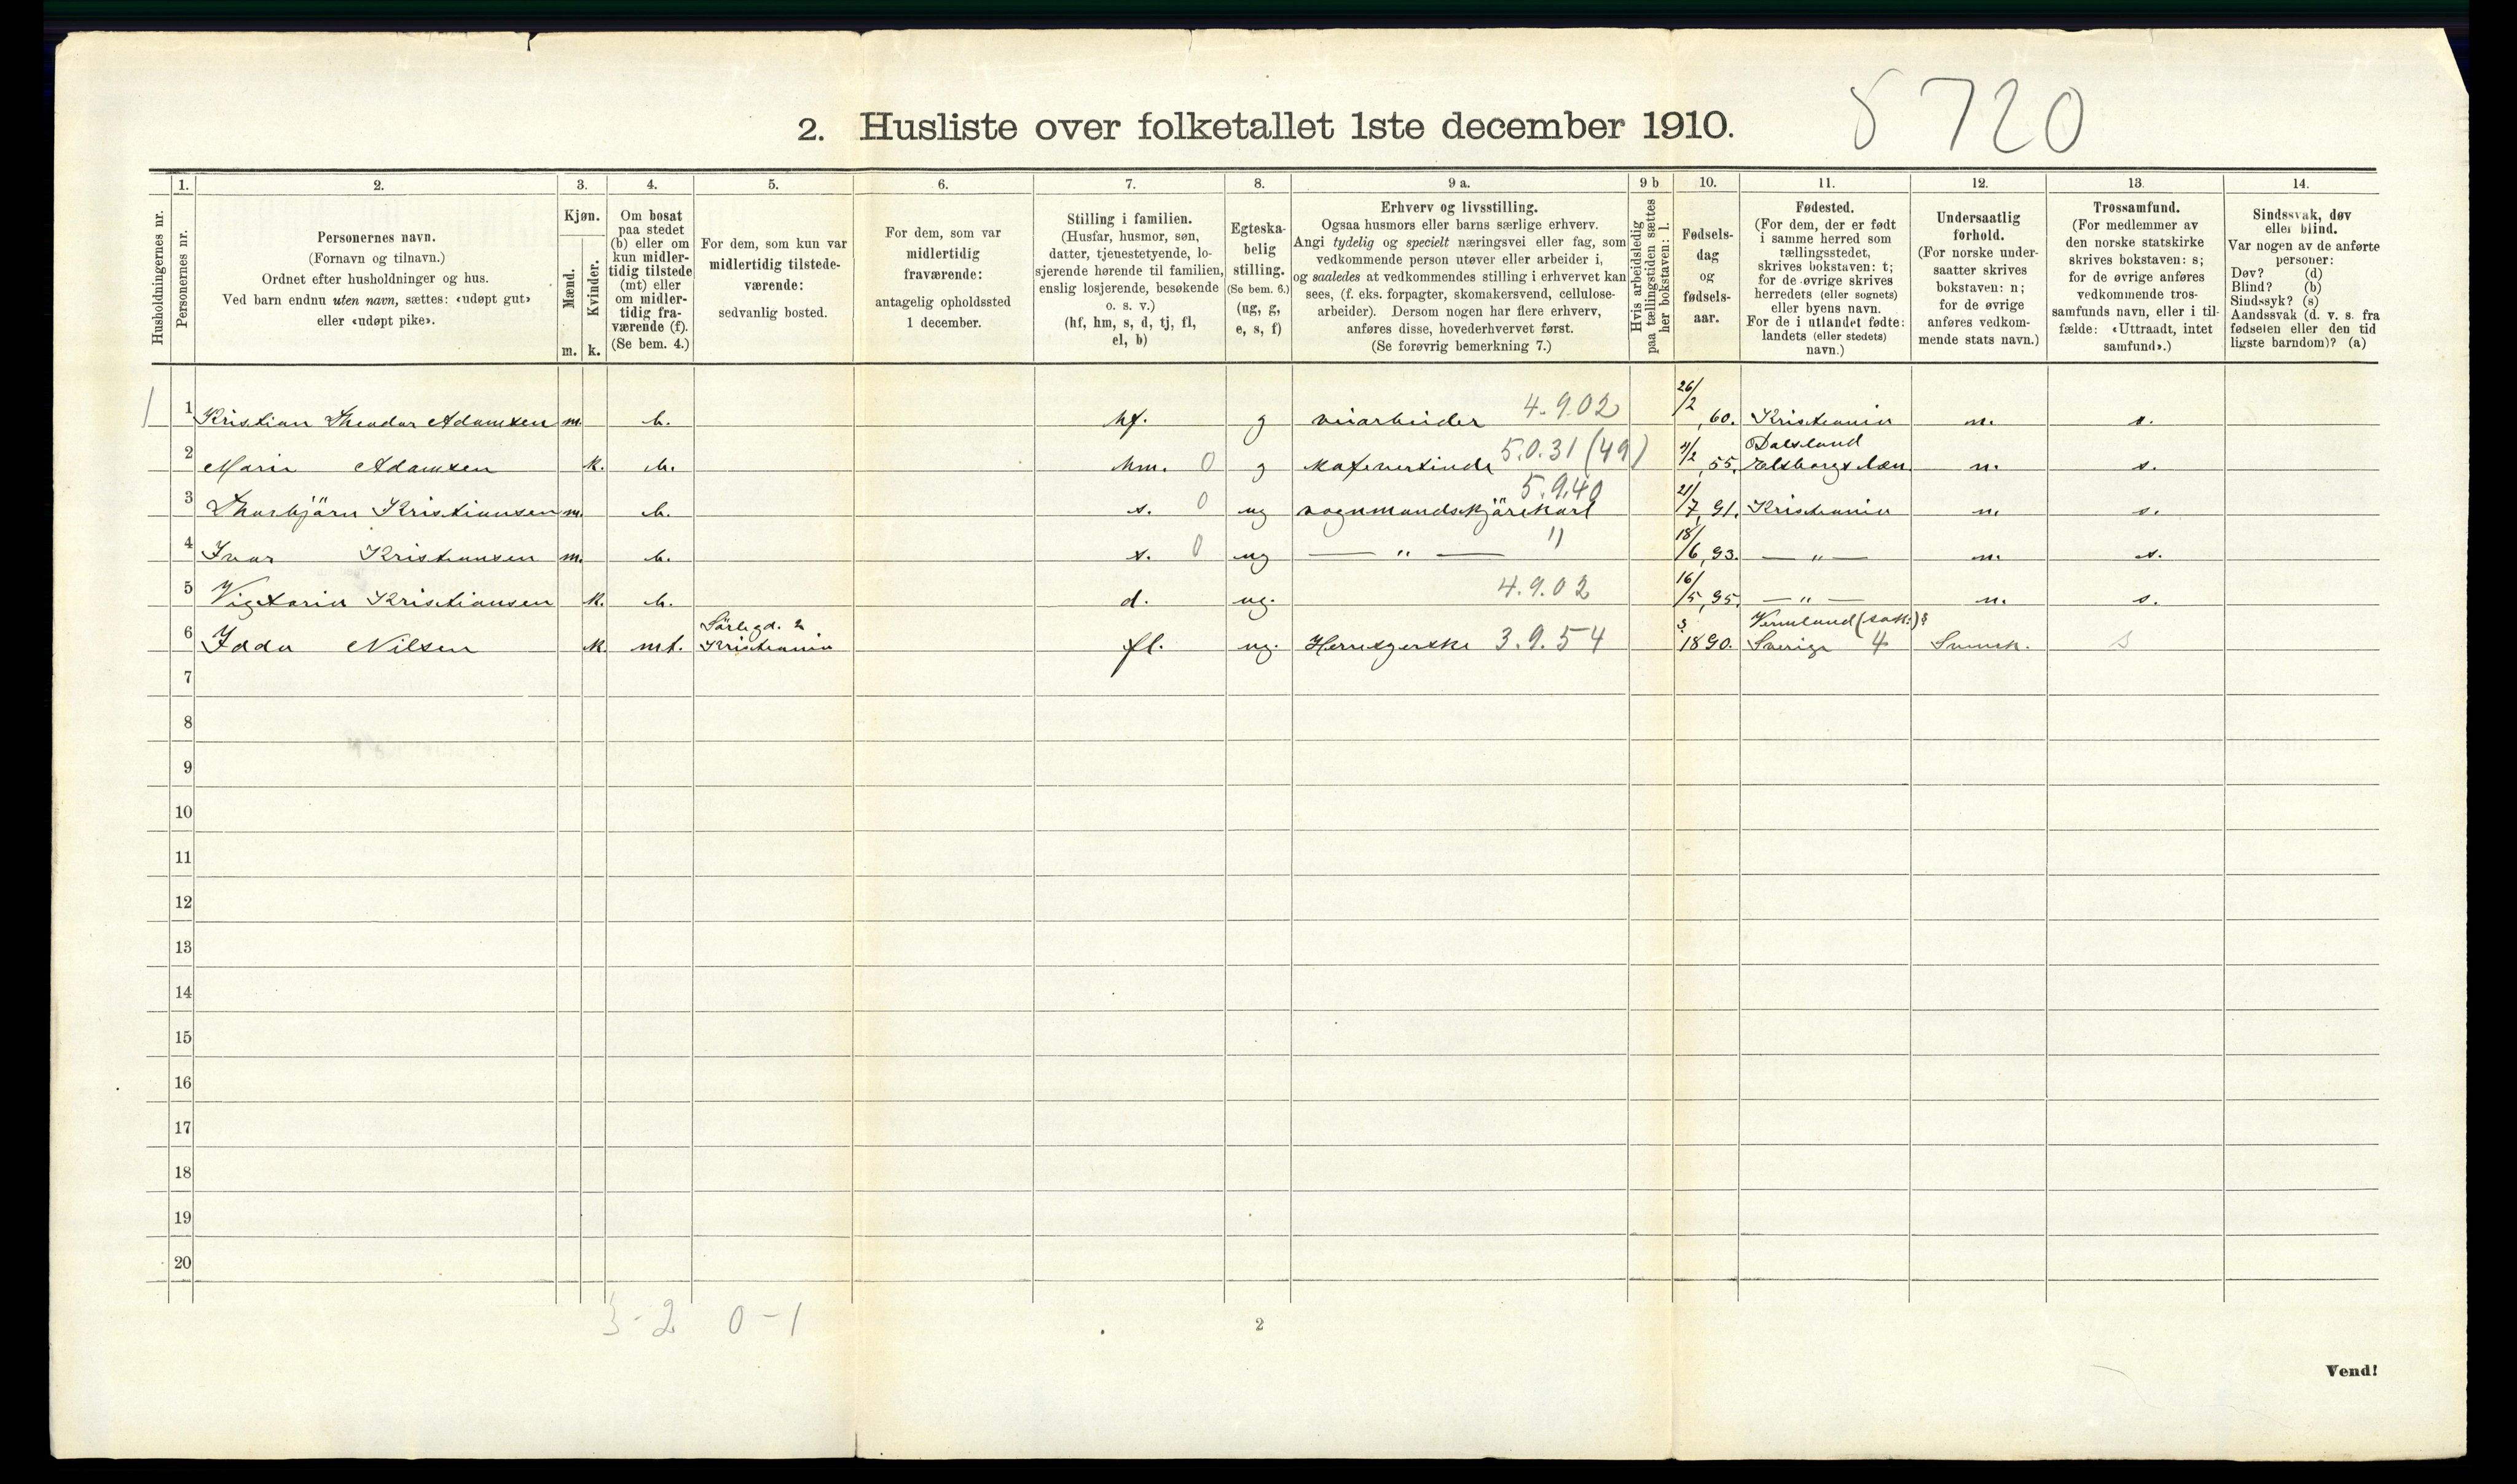 2. Husliste over folketallet 1ste december 1910.
8720
1. 2. 3. 4. 5. 6. 7. 8. 9 a. 9 b 10. 11. 12. 13. 14.
Husholdningernes nr.
Personernes nr.
Personernes navn.
(Fornavn og tilnavn.)
Ordnet efter husholdninger og hus.
Ved barn endnu uten navn, sættes: «udøpt gut»
eller «udøpt pike».
Kjøn.
Mænd.
Kvinder.
m. k.
Om bosat
paa stedet
(b) eller om
kun midler-
tidig tilstede
(mt) eller
om midler-
tidig fra-
værende (f).
(Se bem. 4.)
For dem, som kun var
midlertidig tilstede-
værende:
sedvanlig bosted.
For dem, som var
midlertidig
fraværende:
antagelig opholdssted
1 december.
Stilling i familien.
(Husfar, husmor, søn,
datter, tjenestetyende, lo-
sjerende hørende til familien,
enslig losjerende, besøkende
o. s. v.)
(hf, hm, s, d, tj, fl,
el, b)
Egteska-
belig
stilling.
(Se bem. 6.)
(ug, g,
e, s, f)
Erhverv og livsstilling.
Ogsaa husmors eller barns særlige erhverv.
Angi tydelig og specielt næringsvei eller fag, som
vedkommende person utøver eller arbeider i,
og saaledes at vedkommendes stilling i erhvervet kan
sees, (f. eks. forpagter, skomakersvend, cellulose-
arbeider). Dersom nogen har flere erhverv,
anføres disse, hovederhvervet først.
(Se forøvrig bemerkning 7.)
Hvis arbeidsledig
paa tællingstiden sættes
her bokstaven: l.
Fødsels-
dag
og
fødsels-
aar.
Fødested.
(For dem, der er født
i samme herred som
tællingsstedet,
skrives bokstaven: t;
for de øvrige skrives
herredets (eller sognets)
eller byens navn.
For de i utlandet fødte:
landets (eller stedets)
navn.)
Undersaatlig
forhold.
(For norske under-
saatter skrives
bokstaven: n;
for de øvrige
anføres vedkom-
mende stats navn.)
Trossamfund.
(For medlemmer av
den norske statskirke
skrives bokstaven: s;
for de øvrige anføres
vedkommende tros-
samfunds navn, eller i til-
fælde: «Uttraadt, intet
samfund».)
Sindssvak, døv
eller blind.
Var nogen av de anførte
personer:
Døv? (d)
Blind? (b)
Sindssyk? (s)
Aandssvak (d. v. s. fra
fødselen eller den tid
ligste barndom)? (a)
1 1 Kristian Theodor Adamsen m. b. hf. g veiarbeider 4.9.02 26/2 60. Kristiania n. s.
2 Marie Adamsen k. b. hm. 0 g kafevertinde 5.0.31 (49) 4/2 55. Dalsland Elsborgs län n. s.
3 Thorbjörn Kristiansen m. b. s. 0 ug vognmandskjörekarl 5.9.40 21/7 91. Kristiania n. s.
4 Ivar Kristiansen m. b. s. 0 ug — " — " 18/6 93. — " — n. s.
5 Vigtoria Kristiansen k. b. d. ug. 4.9.02 16/5 95. — " — n. s.
6 Idda Nilsen k. mt. Kristiania fl. ug. 3.9.54 1890. Sverige 4 Svensk. s
7
8
9
10
11
12
13
14
15
16
17
18
19
20
3-2 0-1
2
Vend!